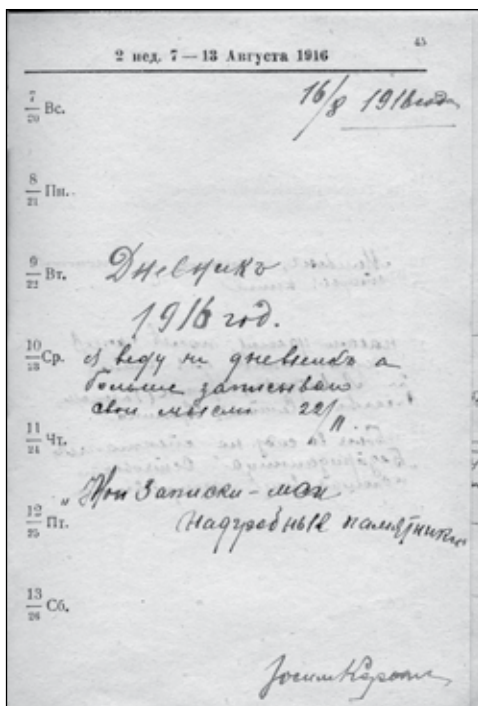 45
2 нед. 7 — 13 Августа 1916
7/20 Вс.
16/8 1916 год
8/21 Пн.
9/22 Вт.
Дневникъ
1916 год.
10/23 Ср.
Я веду не дневникъ а
больше записываю
свои мысли 22/II.
11/24 Чт.
„Мои Записки – мои
12/25 Пт.
надгробные памятники
13/26 Сб.